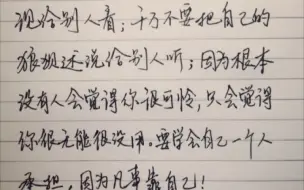 现给别人看；千万不要把自己的
狼狈述说给别人听；因为根本
没有人会觉得你很可怜，只会觉得
你很无能很没用。要学会自己一个人
承担，因为凡事靠自己！